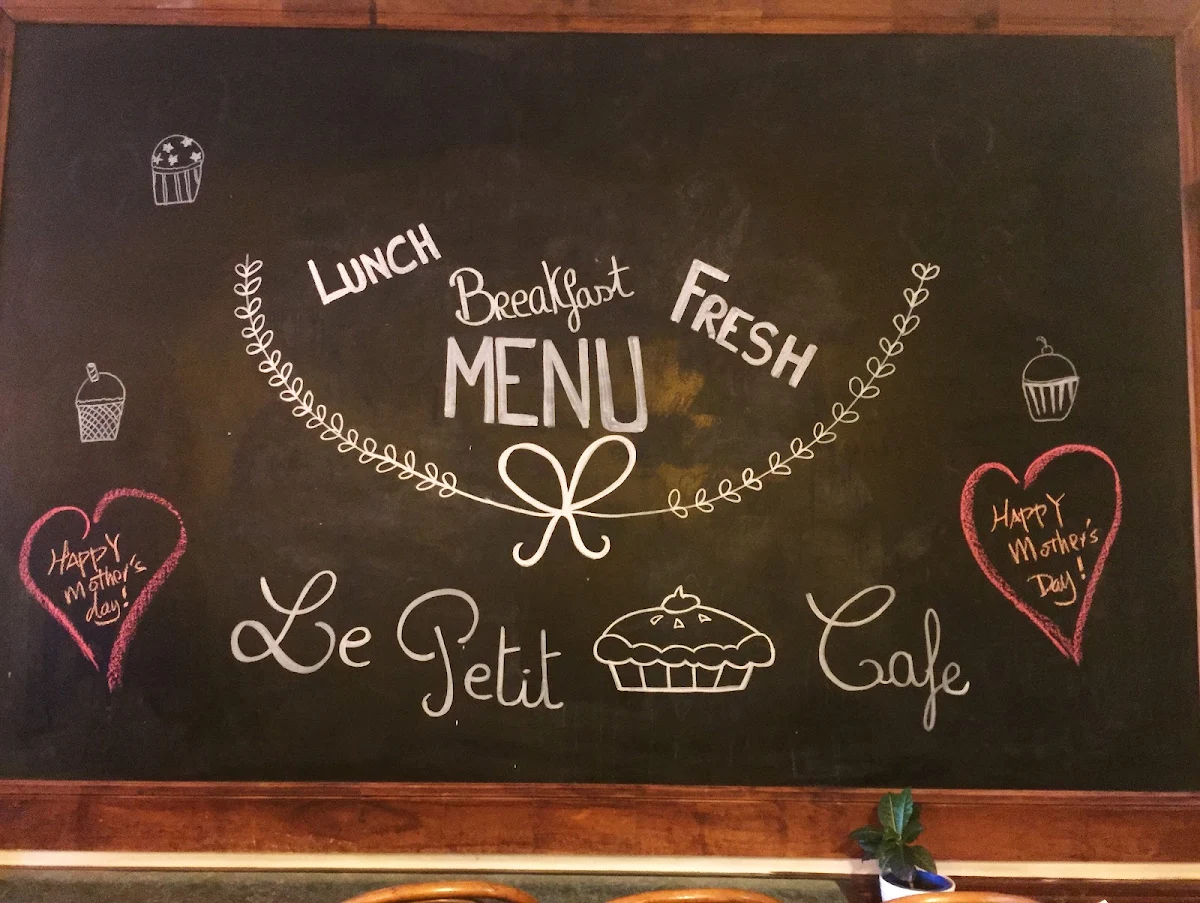 LUNCH
Breakfast
FRESH
MENU
HAPPY
Mother's
day!
HAPPY
Mother's
Day!
Le Petit Cafe